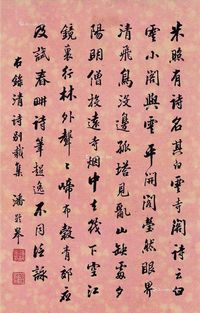 朱照有詩名其白雲寺閣詩云白
雲小閣與雲平開閣瑩然眼界
清飛鳥沒邊孤塔見亂山缺處夕
陽明僧投遠寺烟中去筏下空江
鏡裏行林外聲聲啼布穀青郊應
及試春畊詩筆超逸不同凡詠
右錄清詩別裁集 潘齡皋